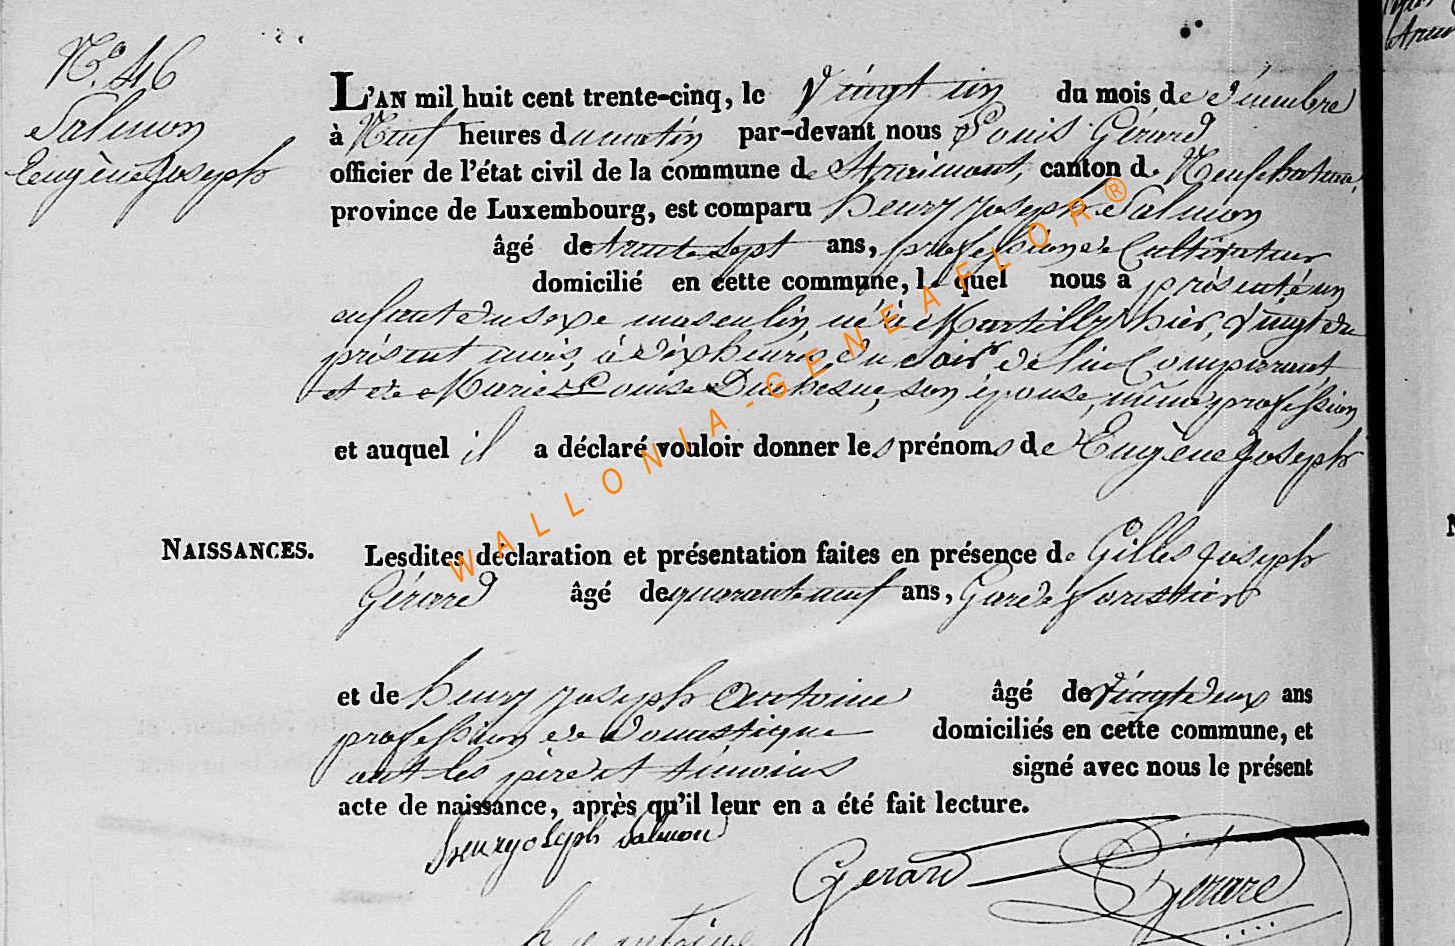 N.° 46
Salmon
Eugène Joseph
L'AN mil huit cent trente-cinq, le Vingt un du mois de Décembre
à Neuf heures du matin par-devant nous Louis Gérard
officier de l'état civil de la commune de Straimont, canton de Neufchateau,
province de Luxembourg, est comparu henry joseph Salmon
âgé de trente sept ans, profession de Cultivateur
domicilié en cette commune, lequel nous a présenté un
enfant du sexe masculin né à Martilly hier, Vingt du
présent mois, à dix heures du soir, de lui Comparant
et de Marie Louise Duchesne, son épouse, même profession
et auquel il a déclaré vouloir donner les prénoms de Eugène Joseph
NAISSANCES.
Lesdites déclaration et présentation faites en présence de Gilles Joseph
Gérard âgé de quarante neuf ans, Garde forestier
et de henry joseph Antoine âgé de Vingt deux ans
profession de Domestique domiciliés en cette commune, et
ont les père et témoins signé avec nous le présent
acte de naissance, après qu'il leur en a été fait lecture.
henry joseph Salmon
Gerard
Gérard
antoine
WALLONIA-GENEAFLOR®